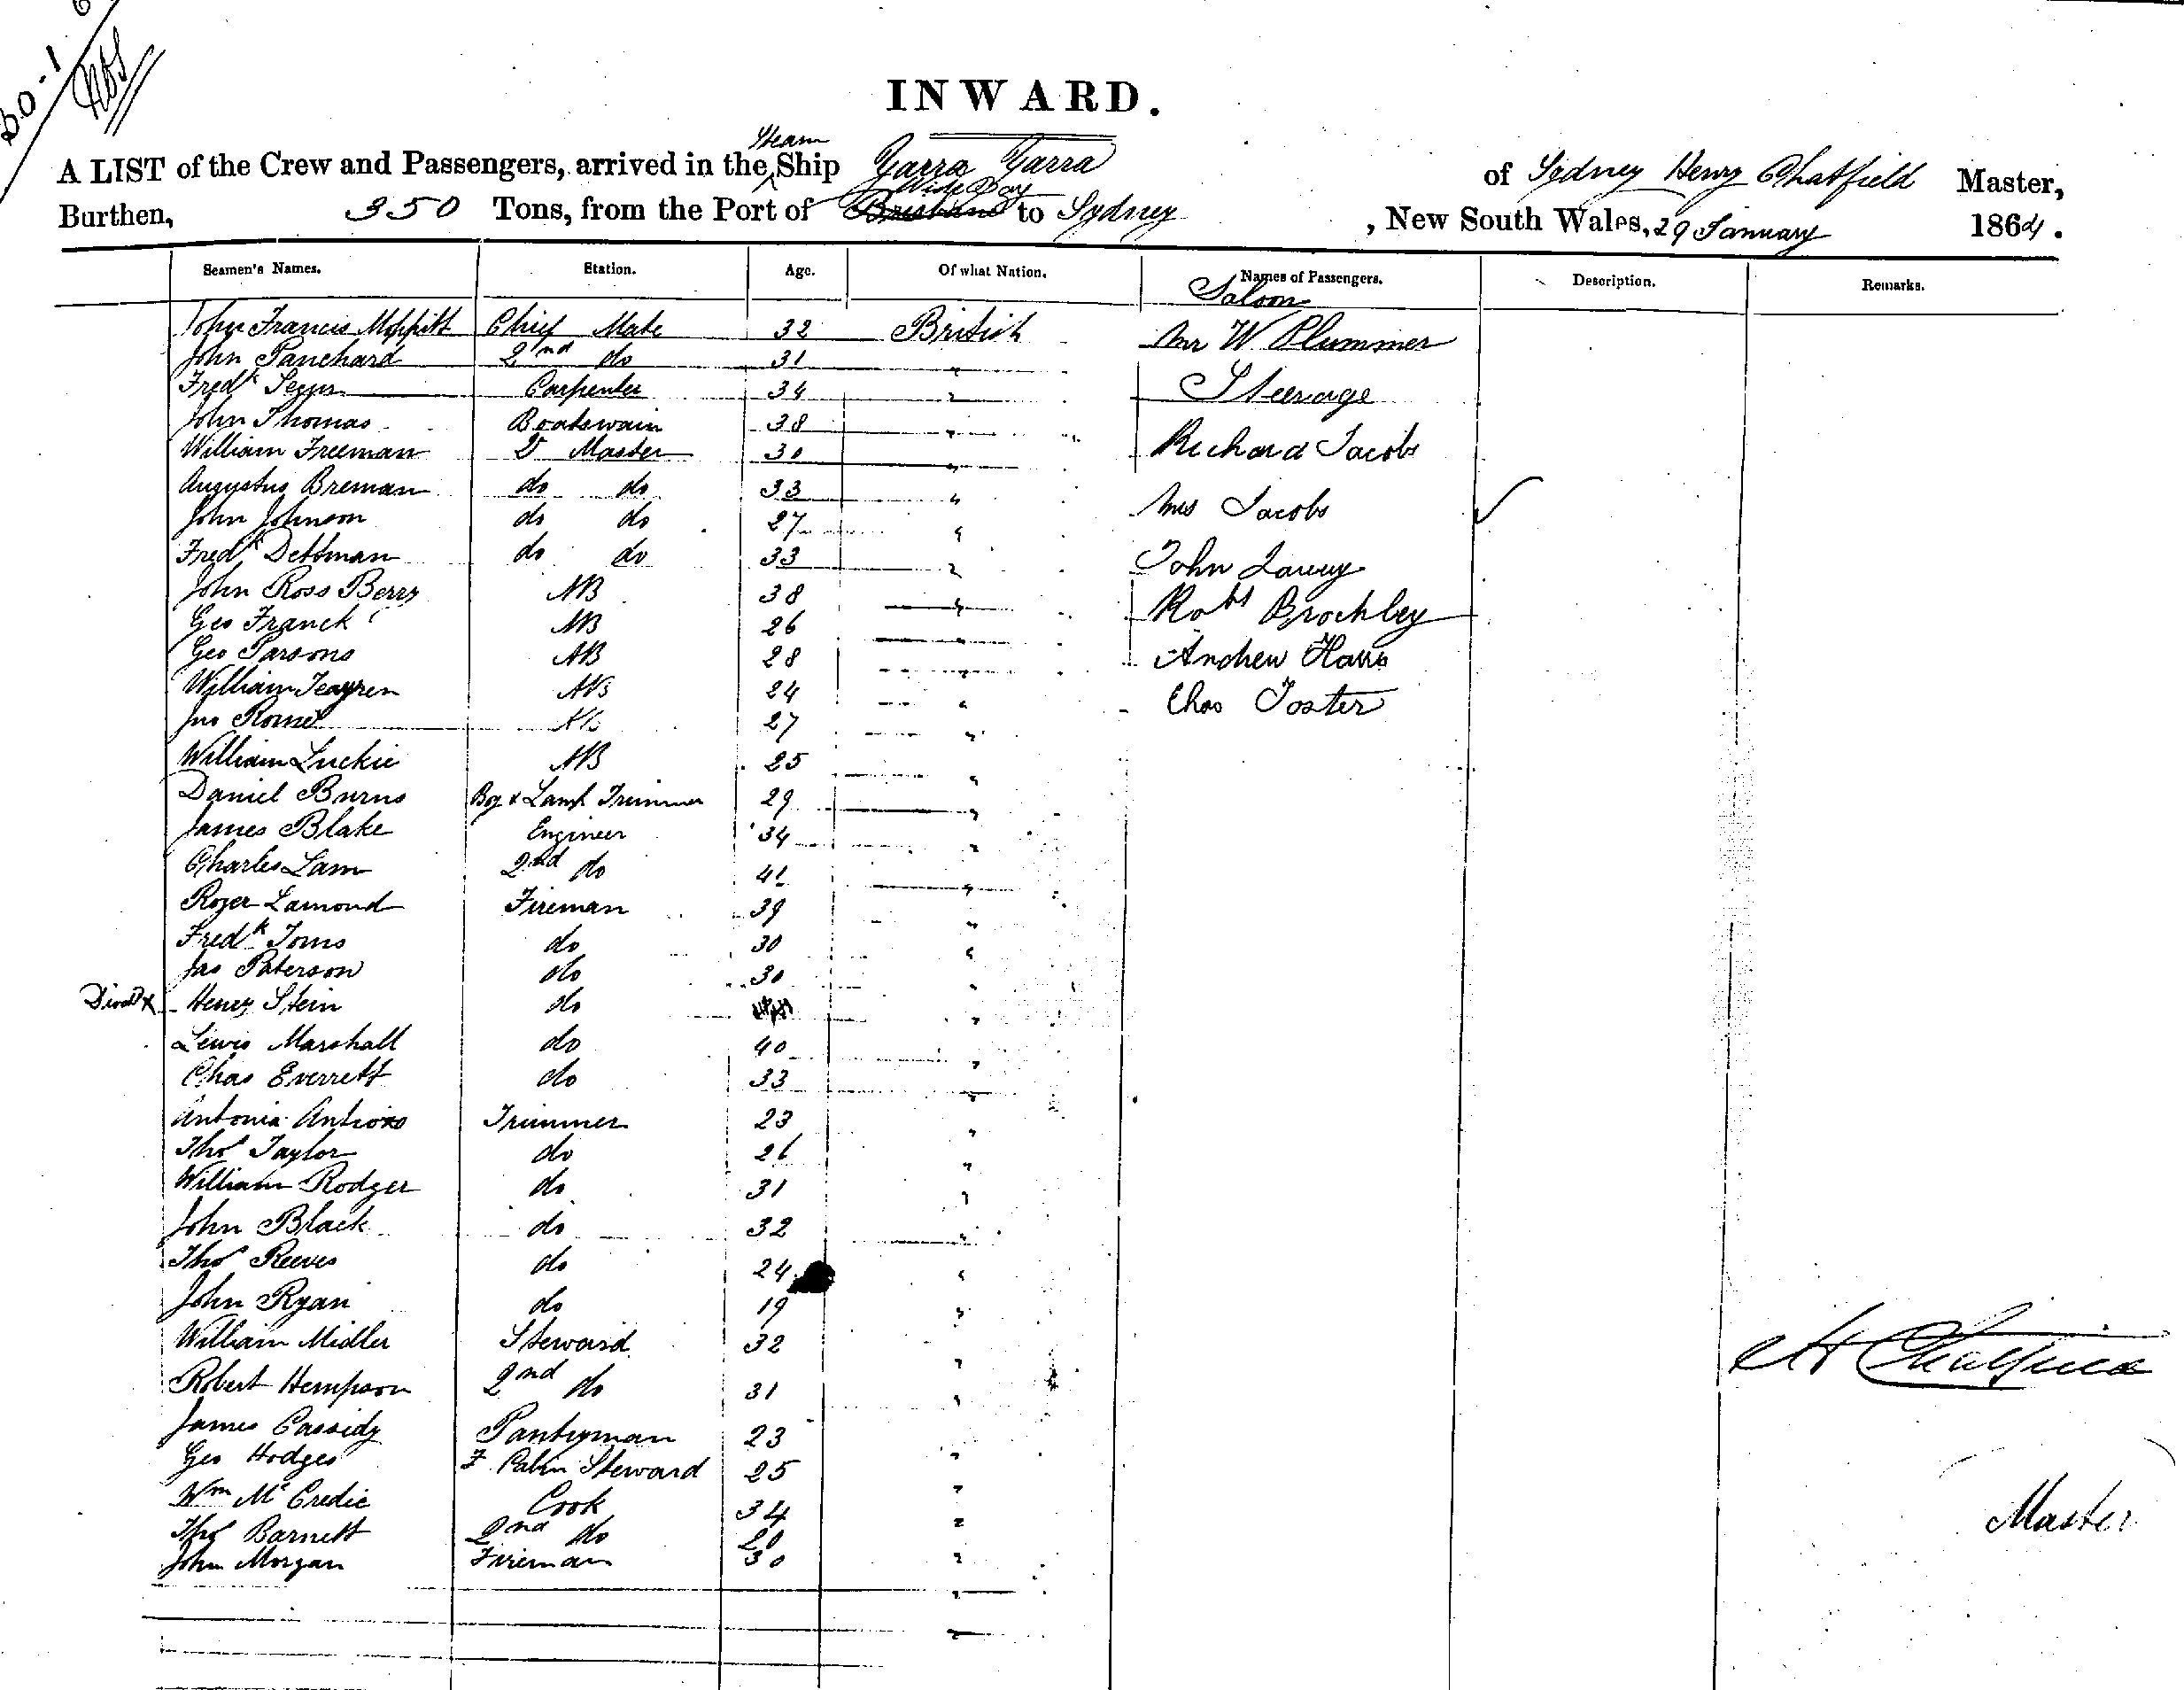 INWARD.
Steam
A LIST of the Crew and Passengers, arrived in the Ship Yarra Yarra of Sydney Henry Chatfield Master,
Wide Bay
Burthen, 350 Tons, from the Port of Brisbane to Sydney, New South Wales, 29 January 1864.
Seamen's Names. Station. Age. Of what Nation. Names of Passengers. Description. Remarks.
Saloon
John Francis Moffitt Chief Mate 32 British Mr W Plummer
John Panchard 2nd do 31 "
Fredk Carpenter 34 " Steerage
John Thomas Boatswain 38 "
William Freeman Qr Master 30 " Richard Jacobs
Augustus Breman do do 33 "
John Johnson do do 27 " Mrs Jacobs
Fredk Dettman do do 33 " John
John Ross Berry AB 38 " Robt Brochley
Geo Franck AB 26 "
Geo Parsons AB 28 " Andrew
William AB 24 " Chas Foster
Jno AB 27 "
William Luckie AB 25 "
Daniel Burns Boy & Lamp Trimmer 29 "
James Blake Engineer 34 "
Charles Lam 2nd do 41 "
Roger Lamond Fireman 39 "
Fredk Toms do 30 "
Jas Paterson do 30 "
Henry Stein do "
Lewis Marshall do 40 "
Chas Everrett do 33 "
Antonia Trimmer 23 "
Thos Taylor do 26 "
William Rodger do 31 "
John Black do 32 "
Thos Reeves do 24 "
John Ryan do 19 "
William Midler Steward 32 "
Robert Hempson 2nd do 31 "
James Cassidy Pantryman 23 "
Geo Hodges F. Cabin Steward 25 "
Wm McCredie Cook 34 "
Thos Barnett 2nd do 20 "
John Morgan Fireman 30 "
Master